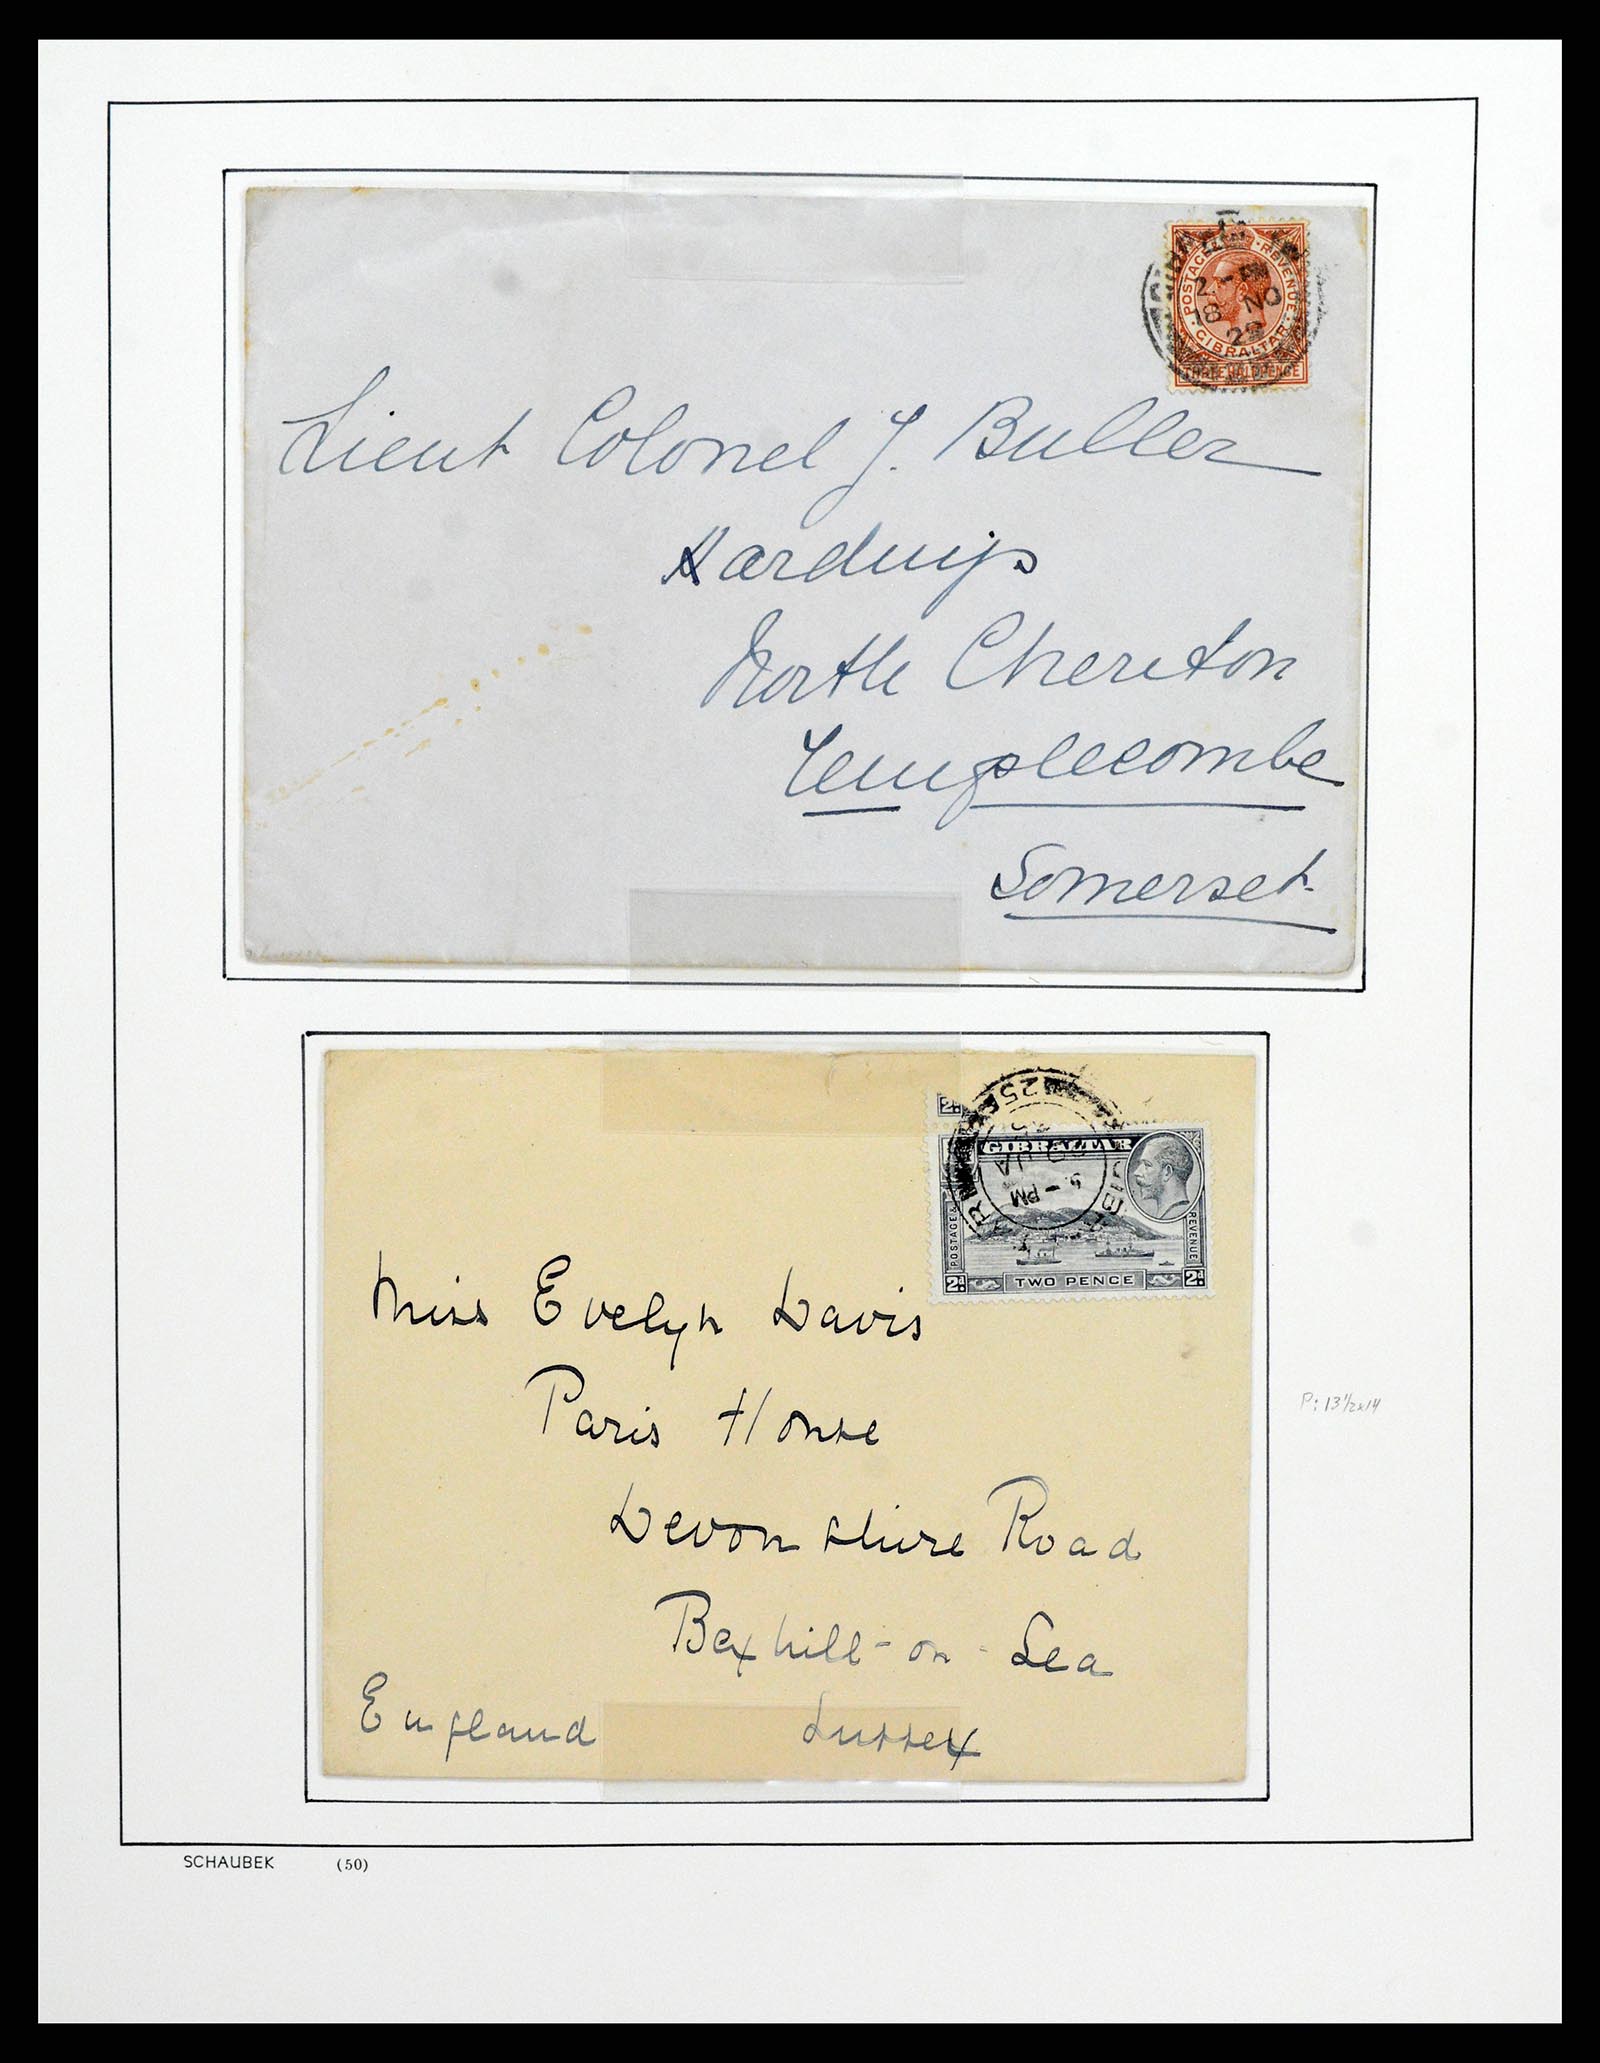 POSTAGE & REVENUE
2 - PM
18 NO
29
GIBRALTAR
THREE HALFPENCE
Lieut Colonel J. Buller
North Cheriton
Templecombe
Somerset.
2d.
GIBRALTAR
25
9. - PM
JA
POSTAGE &
REVENUE
2d. TWO PENCE 2d.
Miss Evelyn Davis
Paris House
Devonshire Road
Bexhill-on-Sea
England Sussex
P: 13 1/2 x 14
SCHAUBEK (50)